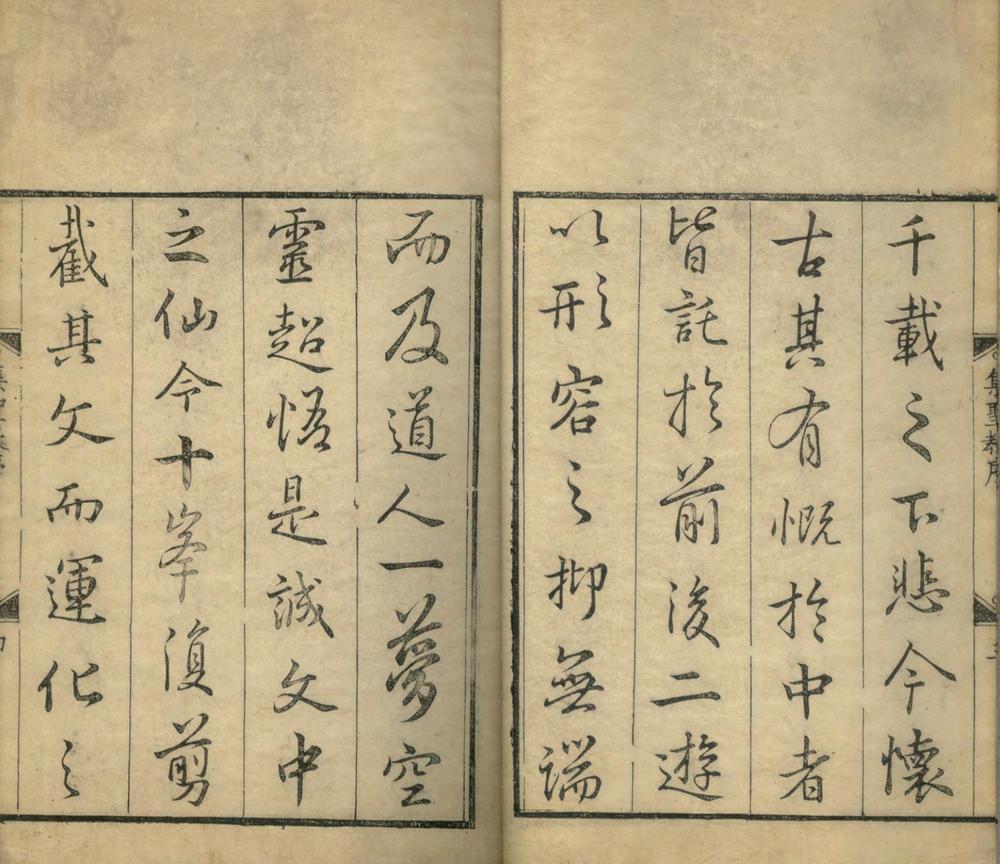 集聖教序
千載之下悲今懷
古其有慨於中者
皆託於前後二遊
以形容之抑無端
而及道人一夢空
靈超悟是誠文中
之仙今十峯復剪
截其文而運化之